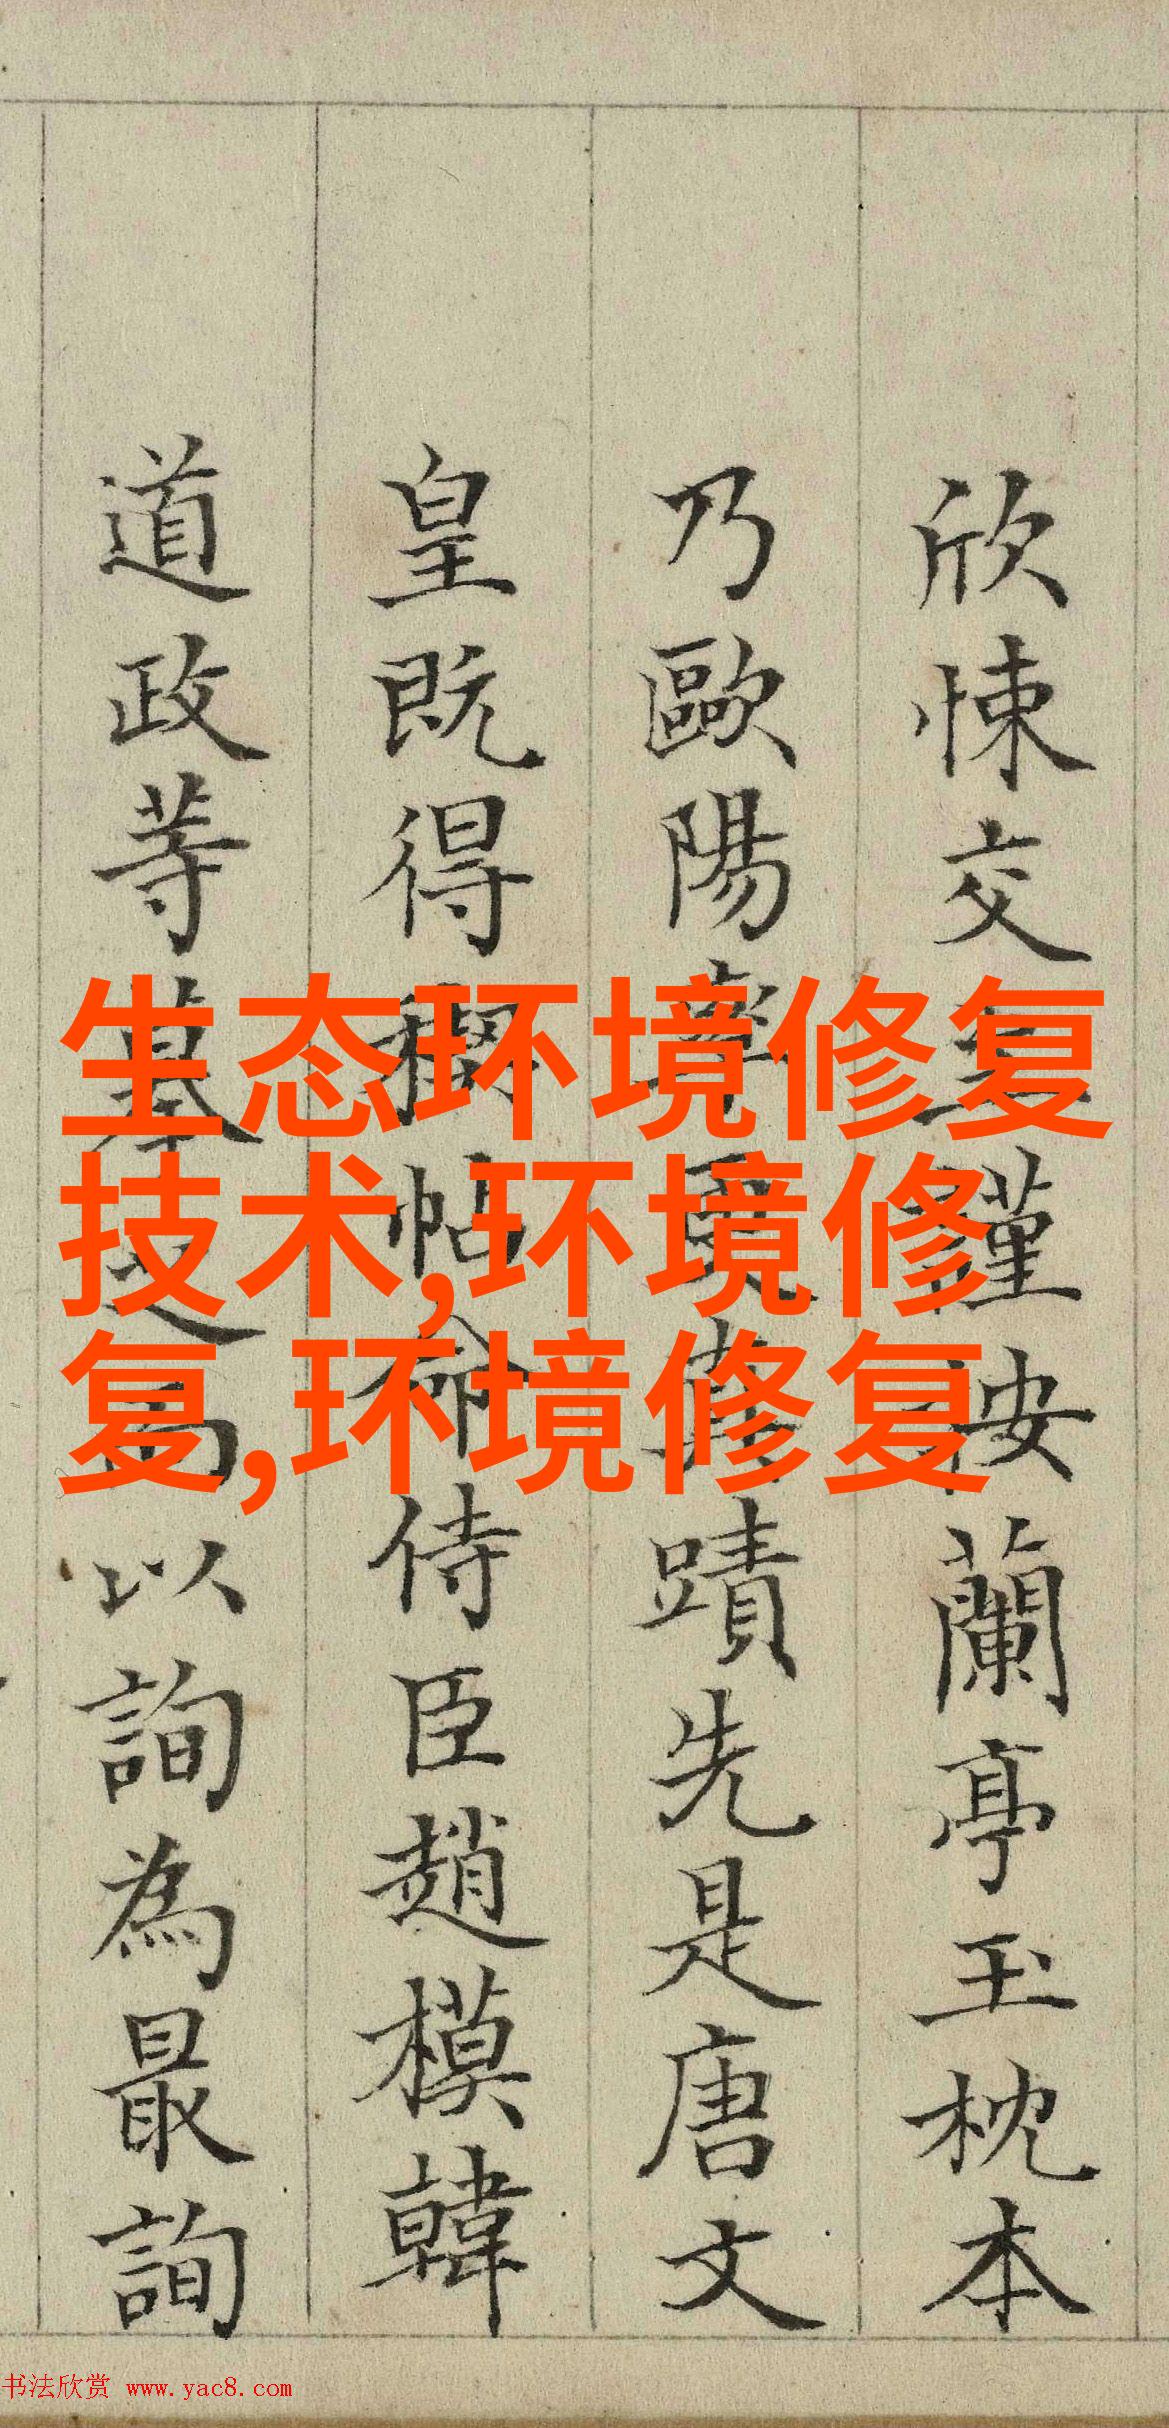 欣悚交
謹按蘭亭玉枕本
乃歐陽率更真蹟先是唐文
皇既得稧帖命侍臣趙模韓
道政等摹之而以詢為最詢
生态环境修复
技术,环境修
复,环境修复
书法欣赏 www.yac8.com